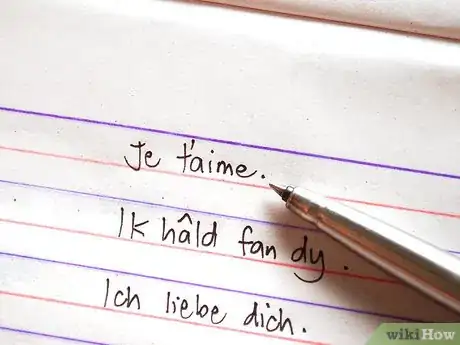 Je t'aime.
Ik hâld fan dy.
Ich liebe dich.
wikiHow